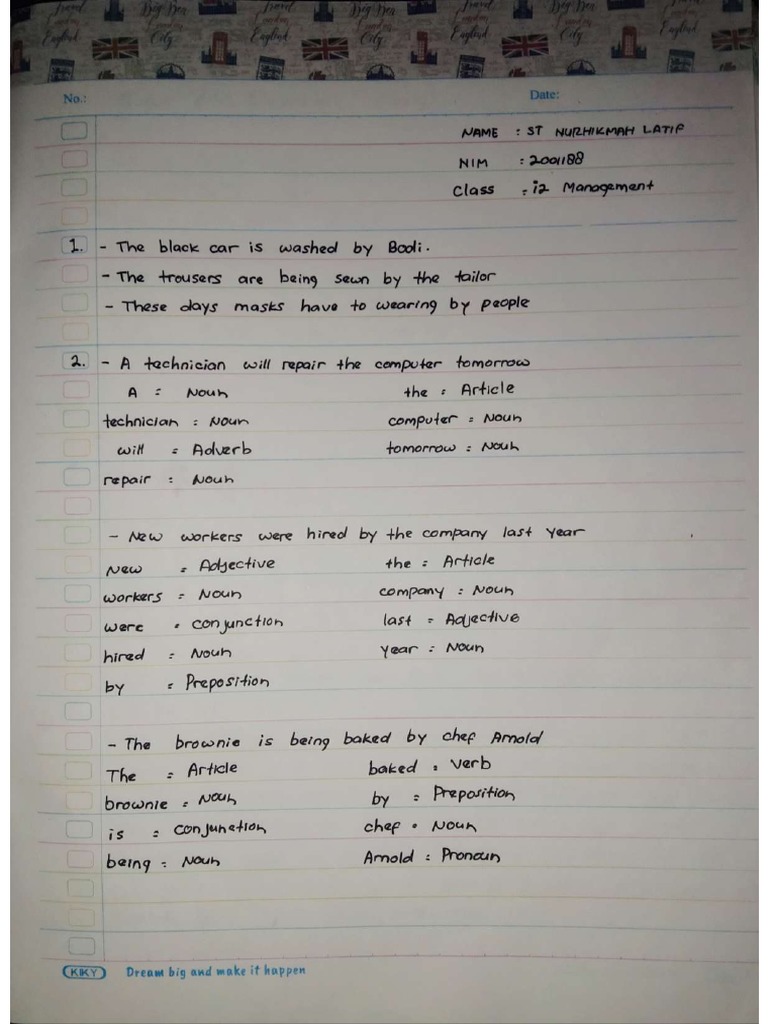 No.:
Date:
NAME : ST NURHIKMAH LATIF
NIM : 2001188
Class : i2 Management
1. - The black car is washed by Bodi.
- The trousers are being sewn by the tailor
- These days masks have to wearing by people
2. - A technician will repair the computer tomorrow
A : Noun the : Article
technician : Noun computer : Noun
will : Adverb tomorrow : Noun
repair : Noun
- New workers were hired by the company last year
New : Adjective the : Article
workers : Noun company : Noun
were : conjunction last : Adjective
hired : Noun year : Noun
by : Preposition
- The brownie is being baked by chef Arnold
The : Article baked : verb
brownie : Noun by : Preposition
is : conjunction chef : Noun
being : Noun Arnold : Pronoun
KIKY Dream big and make it happen